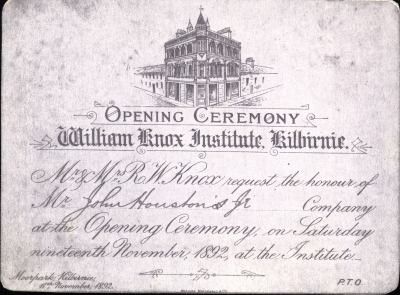 OPENING CEREMONY
William Knox Institute, Kilbirnie.
Mr & Mrs R. W. Knox request the honour of
Mr John Houston's Jr Company
at the Opening Ceremony, on Saturday
nineteenth November, 1892, at the Institute.
Moorpark, Kilbirnie,
November, 1892.
P.T.O.